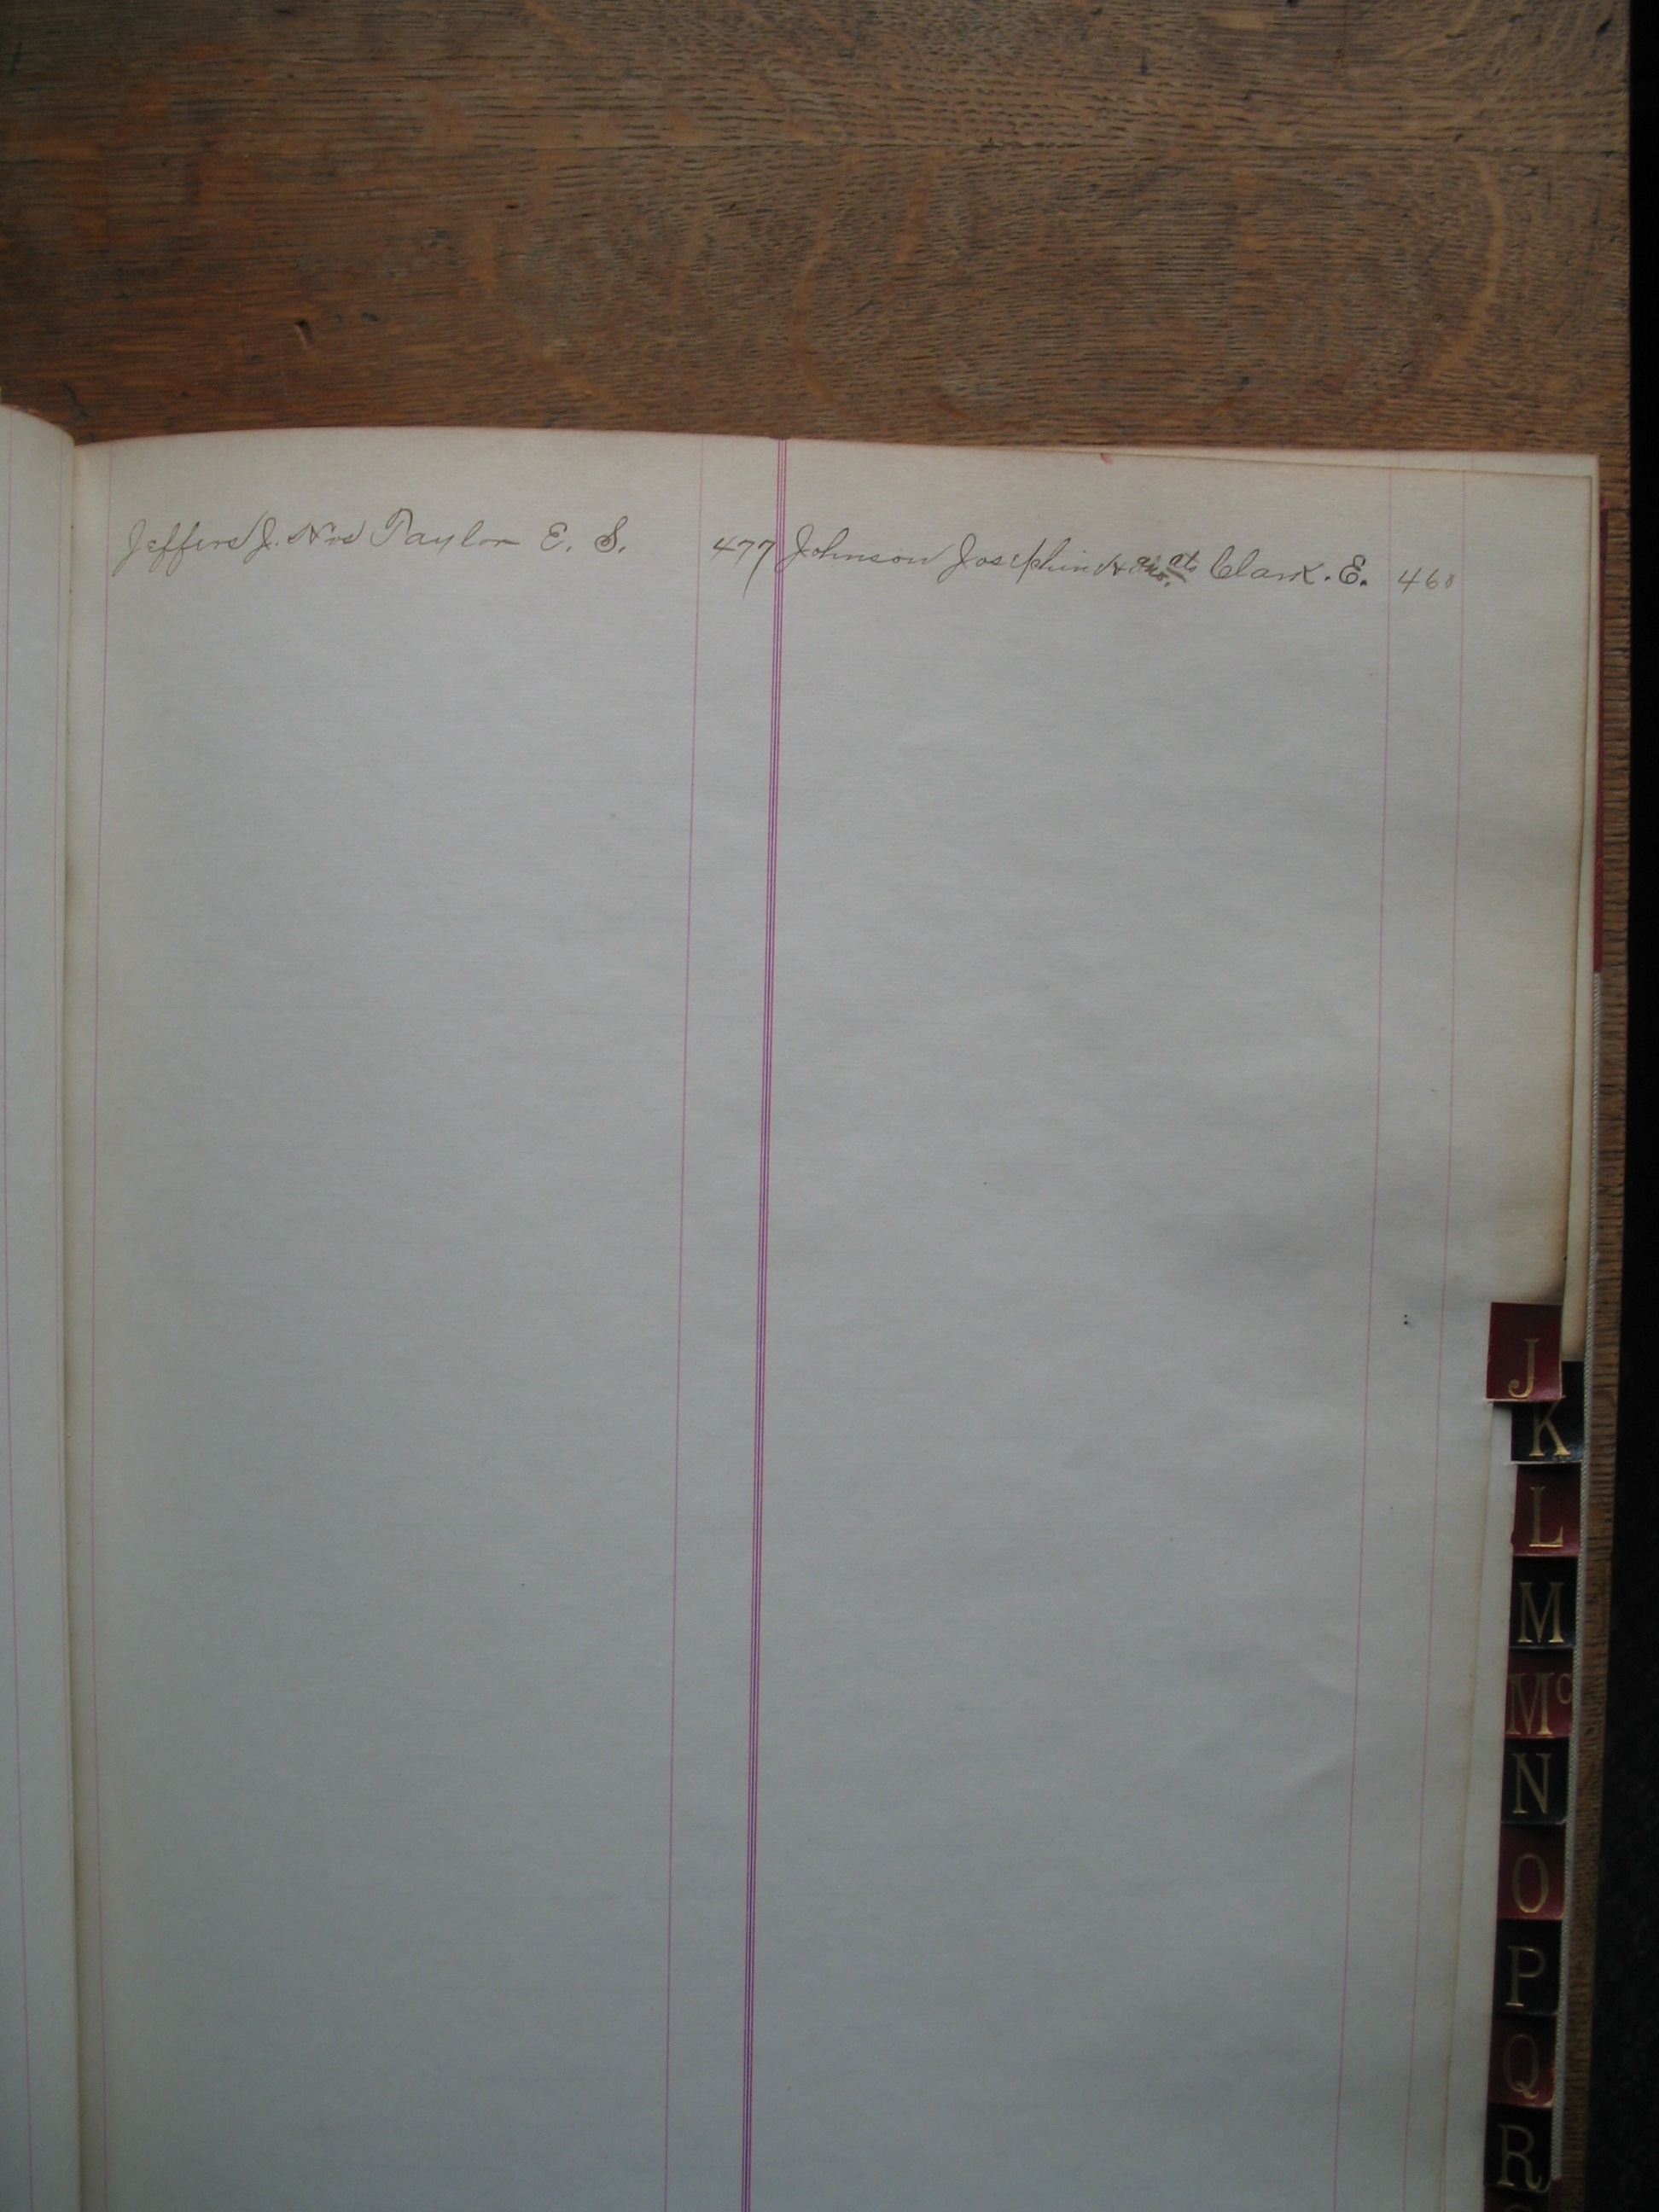 Jeffers J. vs Taylor E. S. 477
Johnson Josephine & ano. ats Clark. E. 460
J
K
L
M
Mc
N
O
P
Q
R